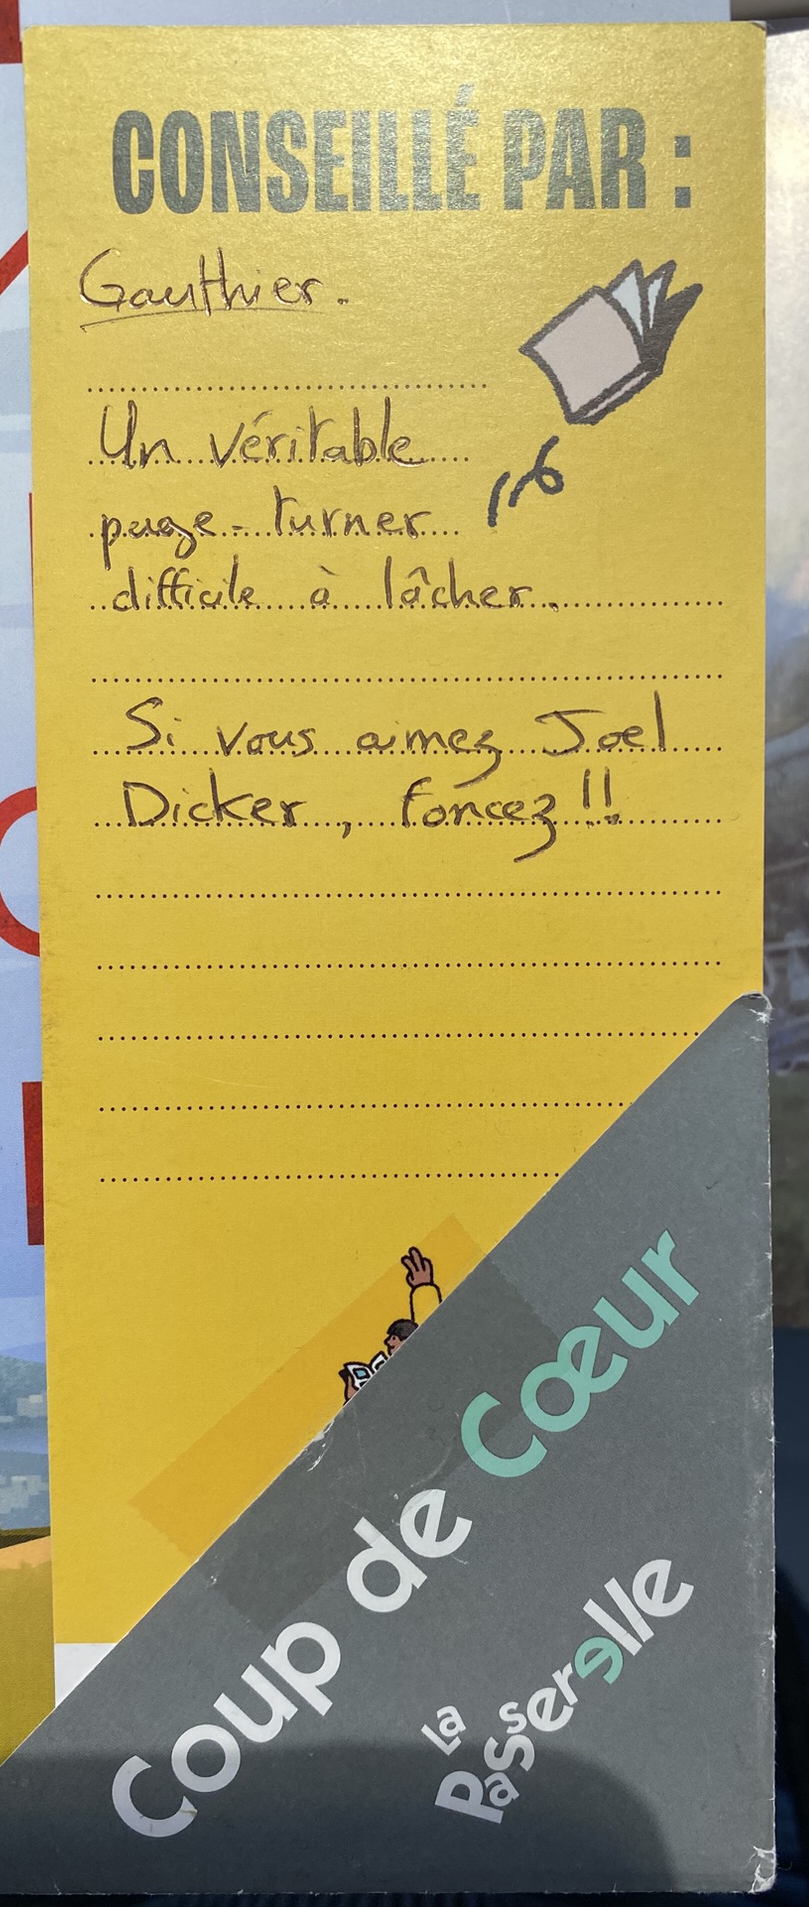 CONSEILLÉ PAR :
Gauthier.
Un véritable
page-turner
difficile à lâcher.
Si vous aimez Joel
Dicker, foncez!!
Coup de Cœur
la
Passerelle